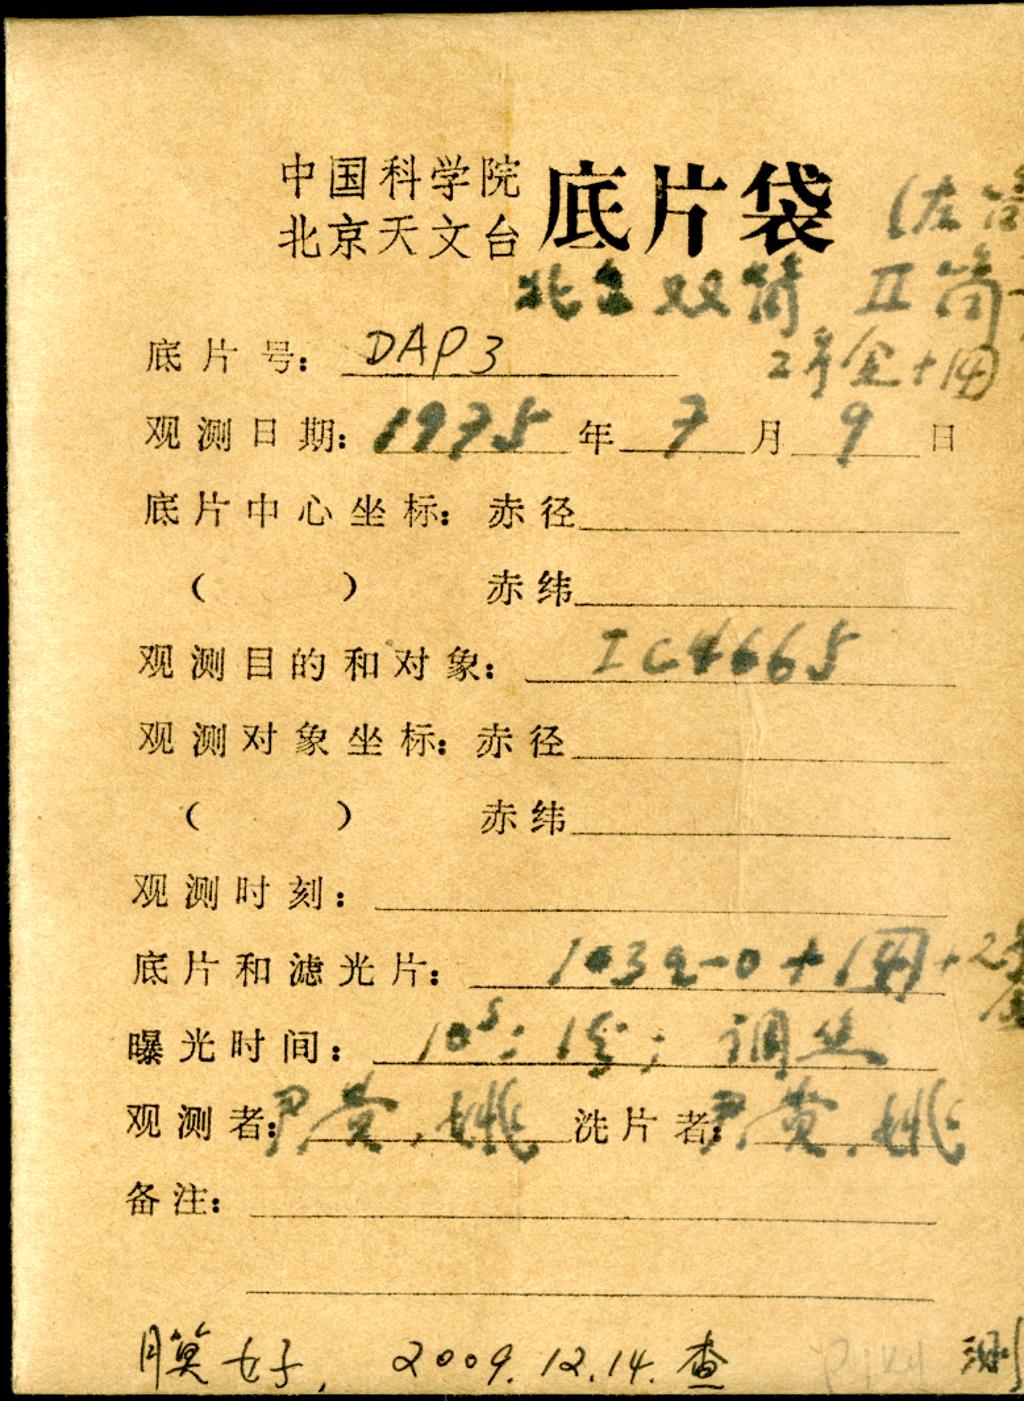 中国科学院
北京天文台 底片袋 (左筒
北台双筒 II筒
底片号: DAP3 2号金+阴
观测日期: 1975年7月9日
底片中心坐标: 赤径
( ) 赤纬
观测目的和对象: IC4665
观测对象坐标: 赤径
( ) 赤纬
观测时刻:
底片和滤光片: 103a-0+1阴+2号
曝光时间: 10s; 1分; 调焦
观测者: 尹.黄.姚 洗片者: 尹.黄.姚
备注:
膜好, 2009.12.14.查 测